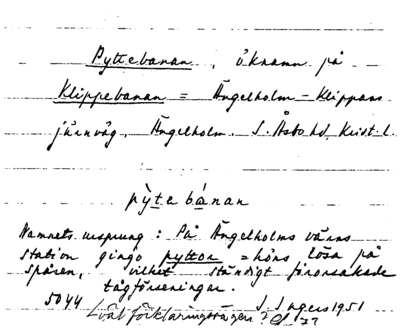 Pyttebanan, öknamn på
Klippebanan = Ängelholm–Klippans
järnväg, Ängelholm. S. Åsbo hd, Krist. l.
pỳtebánan
Namnets ursprung: På Ängelholms värns
station gingo pyttor = höns lösa på
spåren, vilket ständigt förorsakade
tågförseningar.
5044 I. Ingers 1951